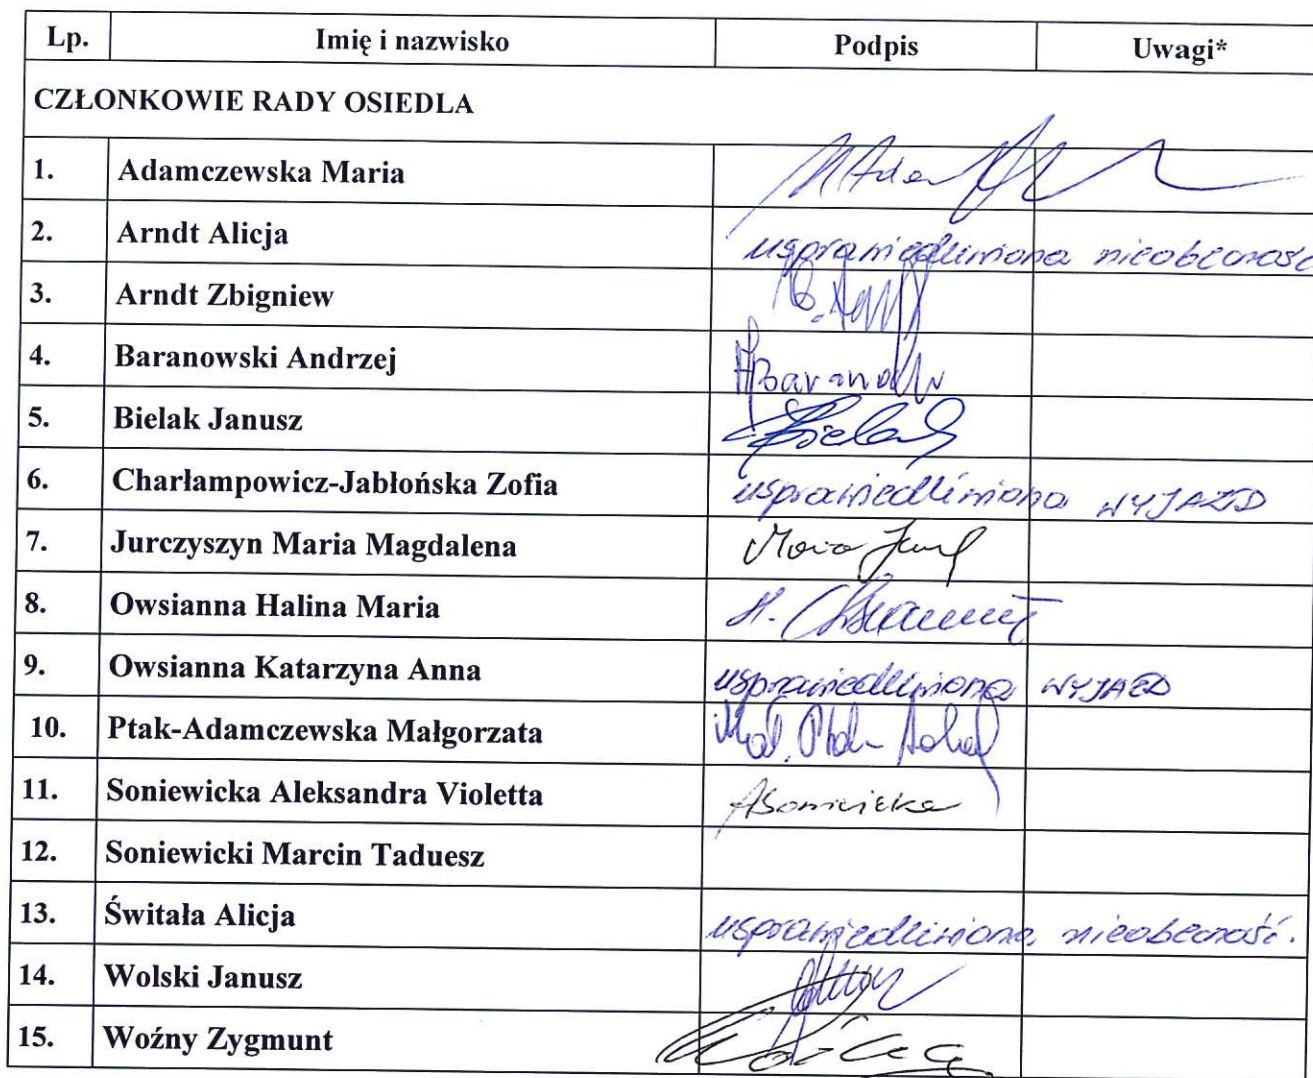 Lp. Imię i nazwisko Podpis Uwagi*
CZŁONKOWIE RADY OSIEDLA
1. Adamczewska Maria
2. Arndt Alicja usprawiedliwiona nieobecność
3. Arndt Zbigniew
4. Baranowski Andrzej
5. Bielak Janusz
6. Charłampowicz-Jabłońska Zofia usprawiedliwiona WYJAZD
7. Jurczyszyn Maria Magdalena
8. Owsianna Halina Maria
9. Owsianna Katarzyna Anna usprawiedliwiona WYJAZD
10. Ptak-Adamczewska Małgorzata
11. Soniewicka Aleksandra Violetta ASoniewicka
12. Soniewicki Marcin Taduesz
13. Świtała Alicja usprawiedliwiona nieobecność.
14. Wolski Janusz
15. Woźny Zygmunt